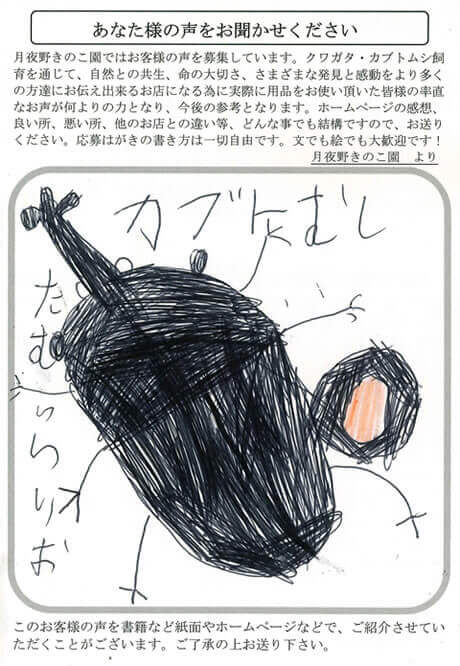 あなた様の声をお聞かせください
月夜野きのこ園ではお客様の声を募集しています。クワガタ・カブトムシ飼
育を通じて、自然との共生、命の大切さ、さまざまな発見と感動をより多く
の方達にお伝え出来るお店になる為に実際に用品をお使い頂いた皆様の率直
なお声が何よりの力となり、今後の参考となります。ホームページの感想、
良い所、悪い所、他のお店との違い等、どんな事でも結構ですので、お送り
ください。応募はがきの書き方は一切自由です。文でも絵でも大歓迎です！
月夜野きのこ園　より
カブトむし
このお客様の声を書籍など紙面やホームページなどで、ご紹介させてい
ただくことがございます。ご了承の上お送り下さい。